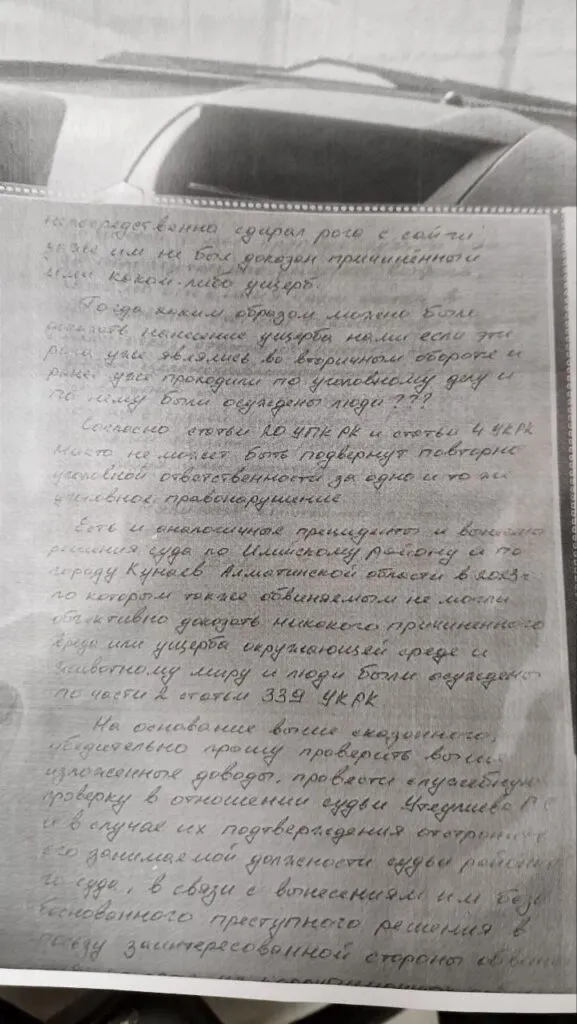 непосредственно сдирал рога с сайги
им не был доказан причинённый
ими какой-либо ущерб.
Тогда каким образом можно было
нанесение ущерба нами если эти
рога уже являлись во вторичным обороте и
ранее уже проходили по уголовному делу и
по нему были осуждены люди ???
Согласно статьи 20 УПК РК и статьи 4 УК РК
никто не может быть подвернут повторно
уголовной ответственности за одно и то же
уголовное правонарушение.
Есть и аналогичные прецидента и
решения суда по Илийскому району и по
городу Кунаев Алматинской области в 2023 г
по которым также обвиняемым не могли
объективно доказать никакого причиненного
вреда или ущерба окружающей среде и
животному миру и люди были осуждены
по части 2 статьи 339 УК РК
На основание выше сказанного,
убедительно прошу проверить выше
изложенные доводы, провести служебную
проверку в отношении судьи
и в случае их подтверждения
его занимаемой должности судьи
го суда, в связи с вынесениям им
преступного решения в
пользу заинтересованной стороны